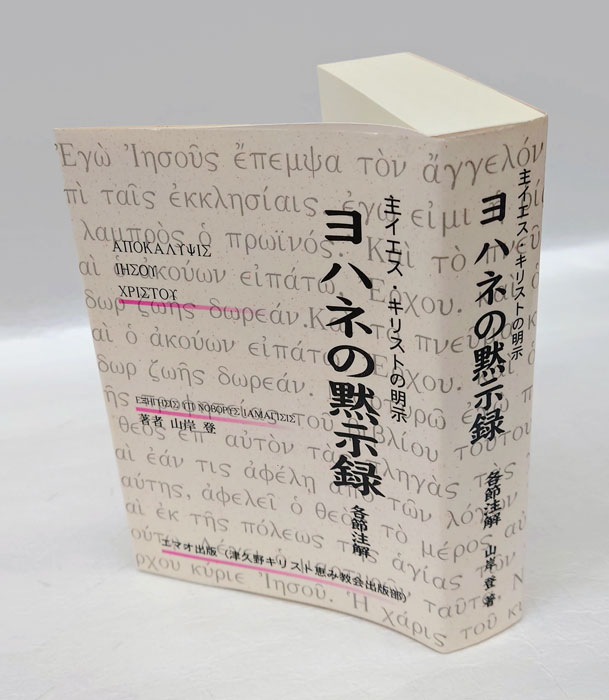 Ἐγὼ Ἰησοῦς ἔπεμψα τὸν ἄγγελόν
πὶ ταῖς ἐκκλησίαις. ἐγώ εἰμι
λαμπρὸς ὁ πρωϊνός. Καὶ τὸ πν
αὶ ὁ ἀκούων εἰπάτω, Ἔρχου. καὶ
δωρ ζωῆς δωρεάν.
αὶ ὁ ἀκούων εἰπάτω
δωρ ζωῆς δωρεάν.
τοῦ βιβλίου τούτου
θεὸς ἐπ᾽ αὐτὸν τὰς πληγὰς
αὶ ἐάν τις ἀφέλῃ ἀπὸ τῶν λόγων
αύτης, ἀφελεῖ ὁ θεὸς τὸ μέρος αὐ
αὶ ἐκ τῆς πόλεως τῆς ἁγίας
ρχου κύριε Ἰησοῦ. Ἡ χάρις τοῦ κυ
ΑΠΟΚΑΛΥΨΙΣ
ΙΗΣΟΥ
ΧΡΙΣΤΟΥ
主イエス・キリストの明示
ヨハネの黙示録
各節注解
著者 山岸 登
エマオ出版（津久野キリスト恵み教会出版部）
主イエス・キリストの明示
ヨハネの黙示録
各節注解
山岸 登 著